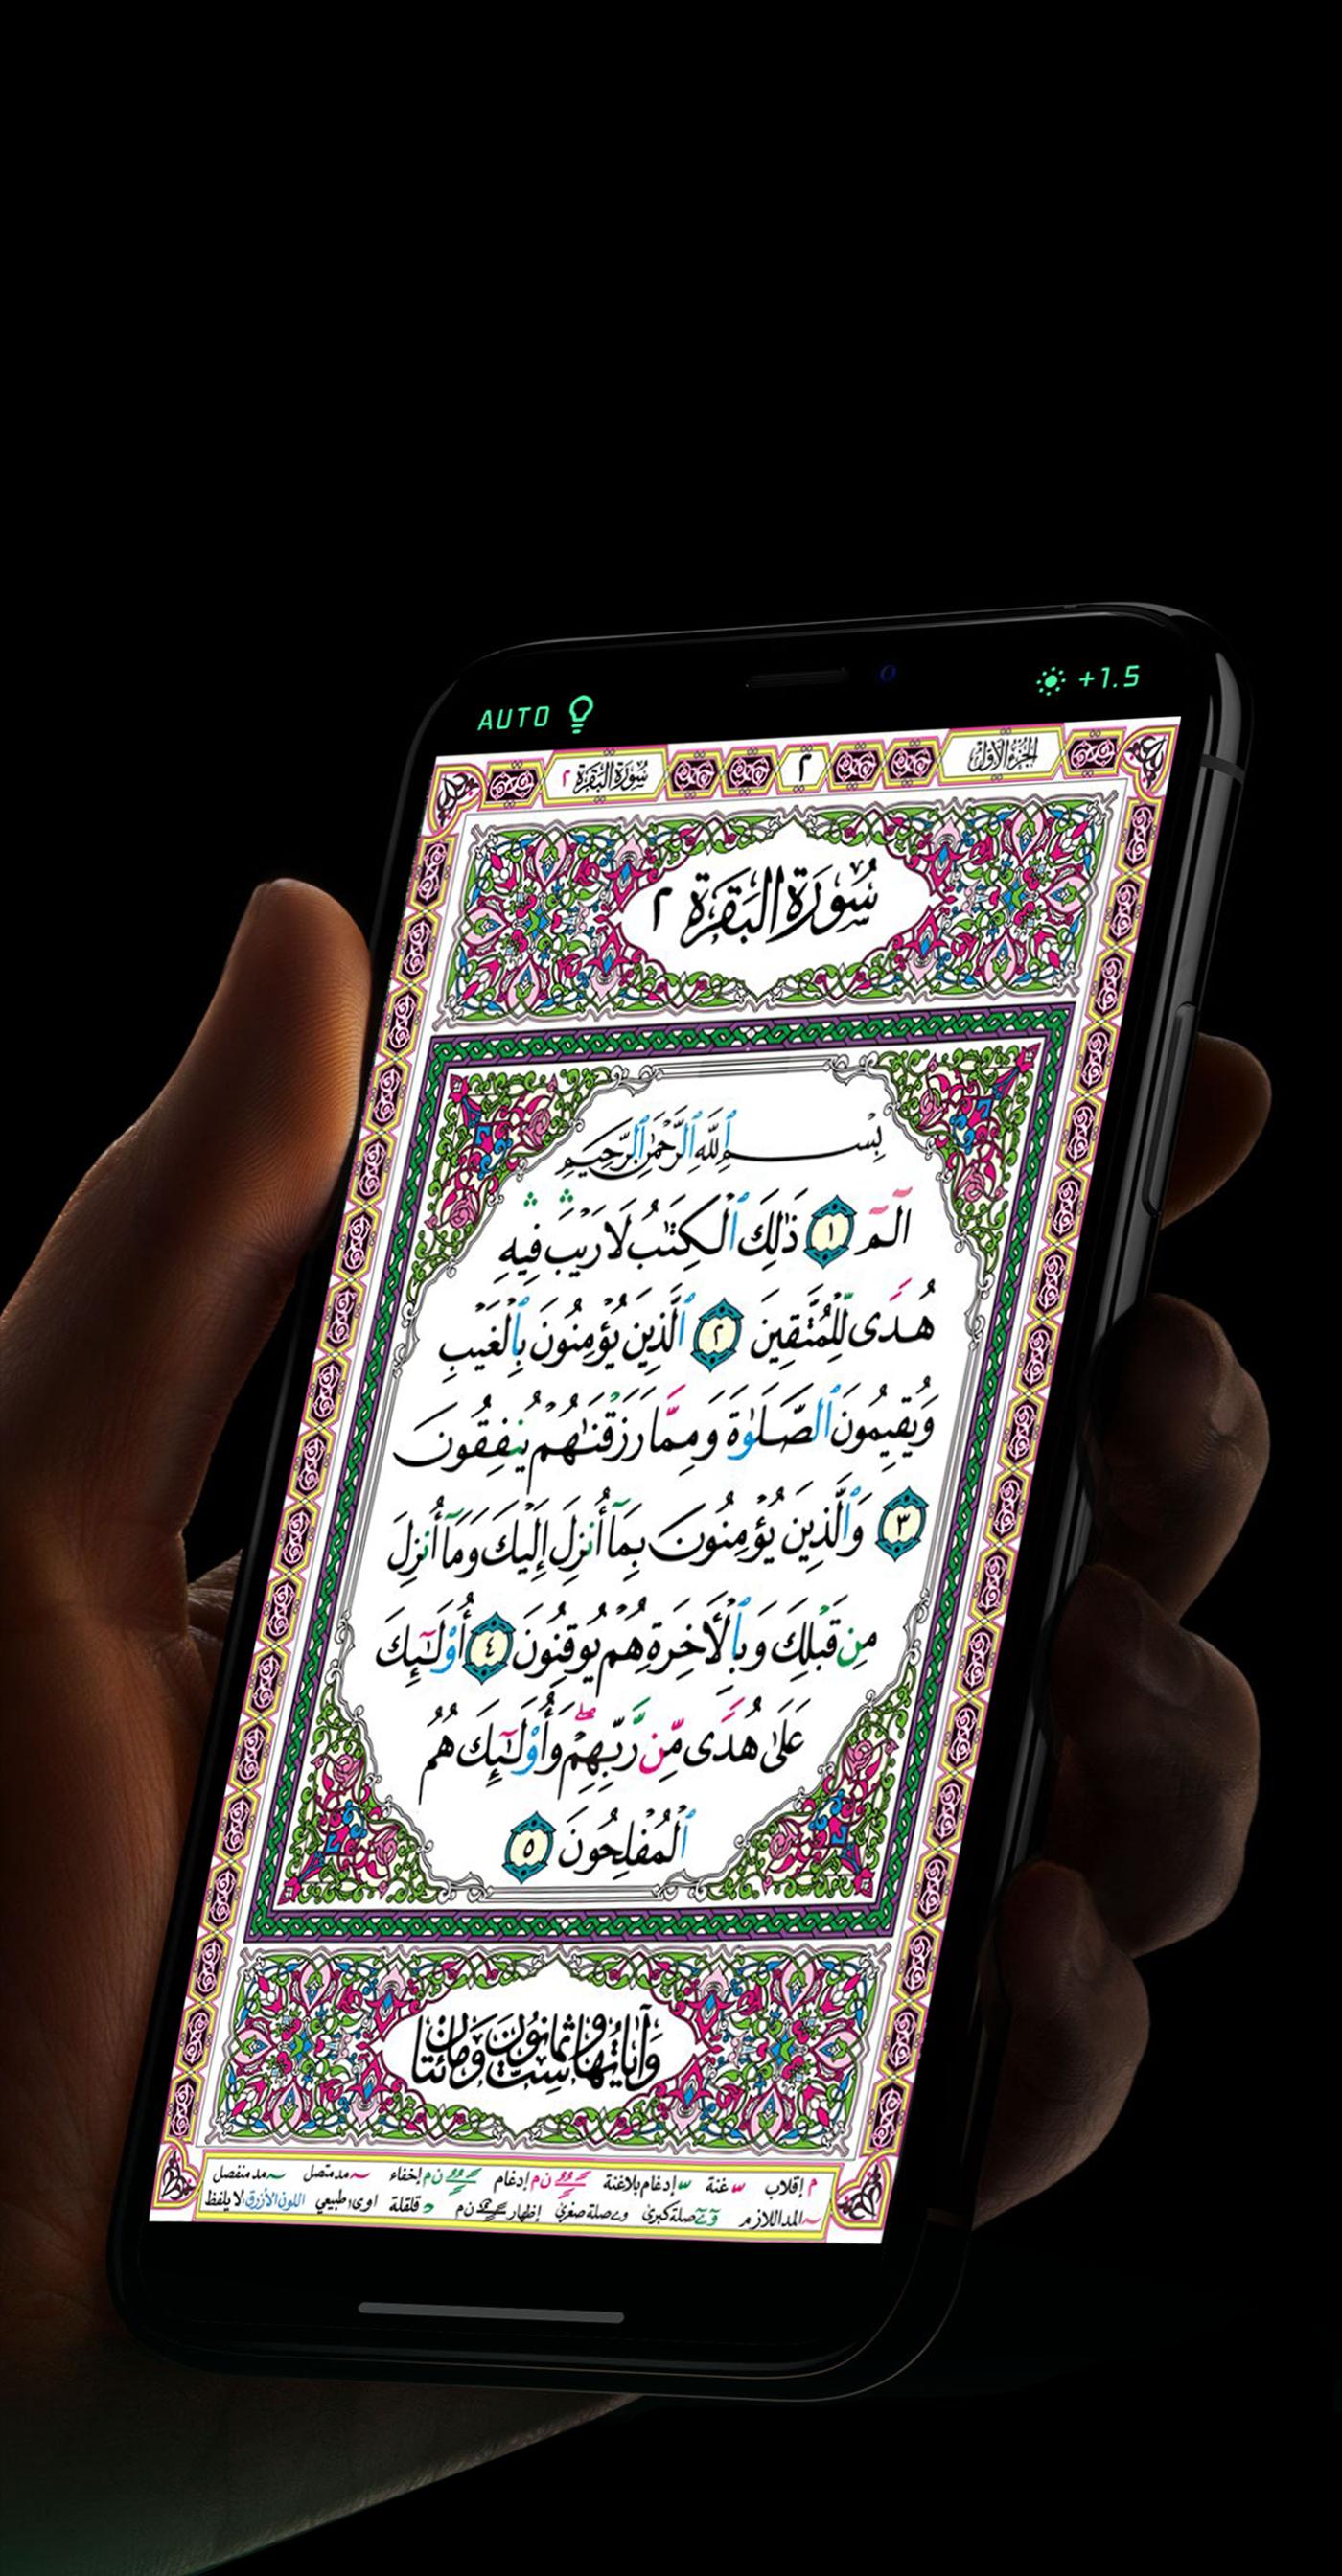 AUTO +1.5
الجزء الأول ٢ سورة البقرة ٢
سُورَةُ البَقَرَةِ ٢
بِسْمِ ٱللَّهِ ٱلرَّحْمَٰنِ ٱلرَّحِيمِ
الٓمٓ ١ ذَٰلِكَ ٱلْكِتَٰبُ لَا رَيْبَ فِيهِ
هُدًى لِّلْمُتَّقِينَ ٢ ٱلَّذِينَ يُؤْمِنُونَ بِٱلْغَيْبِ
وَيُقِيمُونَ ٱلصَّلَوٰةَ وَمِمَّا رَزَقْنَٰهُمْ يُنفِقُونَ
٣ وَٱلَّذِينَ يُؤْمِنُونَ بِمَآ أُنزِلَ إِلَيْكَ وَمَآ أُنزِلَ
مِن قَبْلِكَ وَبِٱلْأَخِرَةِ هُمْ يُوقِنُونَ ٤ أُوْلَٰٓئِكَ
عَلَىٰ هُدًى مِّن رَّبِّهِمْ ۖ وَأُوْلَٰٓئِكَ هُمُ
ٱلْمُفْلِحُونَ ٥
وَآيَاتُهَا سِتٌّ وَثَمَانُونَ وَمَائَتَانِ
م إقلاب غنة إدغام بلاغنة ن م إدغام ن م إخفاء مد متصل مد منفصل
المد اللازم صلة كبرى صلة صغرى إظهار ن م قلقلة اوى طبيعي اللون الأزرق لا يلفظ